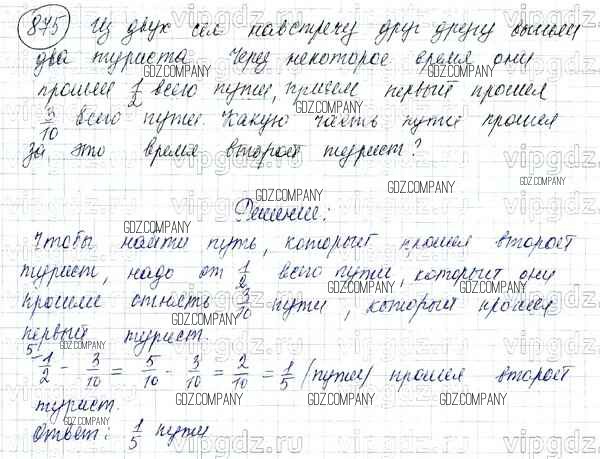 875 Из двух сёл навстречу друг другу вышли
два туриста. Через некоторое время они
прошли 1/2 всего пути, причём первый прошел
3/10 всего пути. Какую часть пути прошел
за это время второй турист?
Решение:
Чтобы найти путь, который прошел второй
турист, надо от 1/2 всего пути, который они
прошли отнять 3/10 пути, который прошел
первый турист.
5 1/2 - 3/10 = 5/10 - 3/10 = 2/10 = 1/5 (пути) прошел второй
турист.
Ответ: 1/5 пути